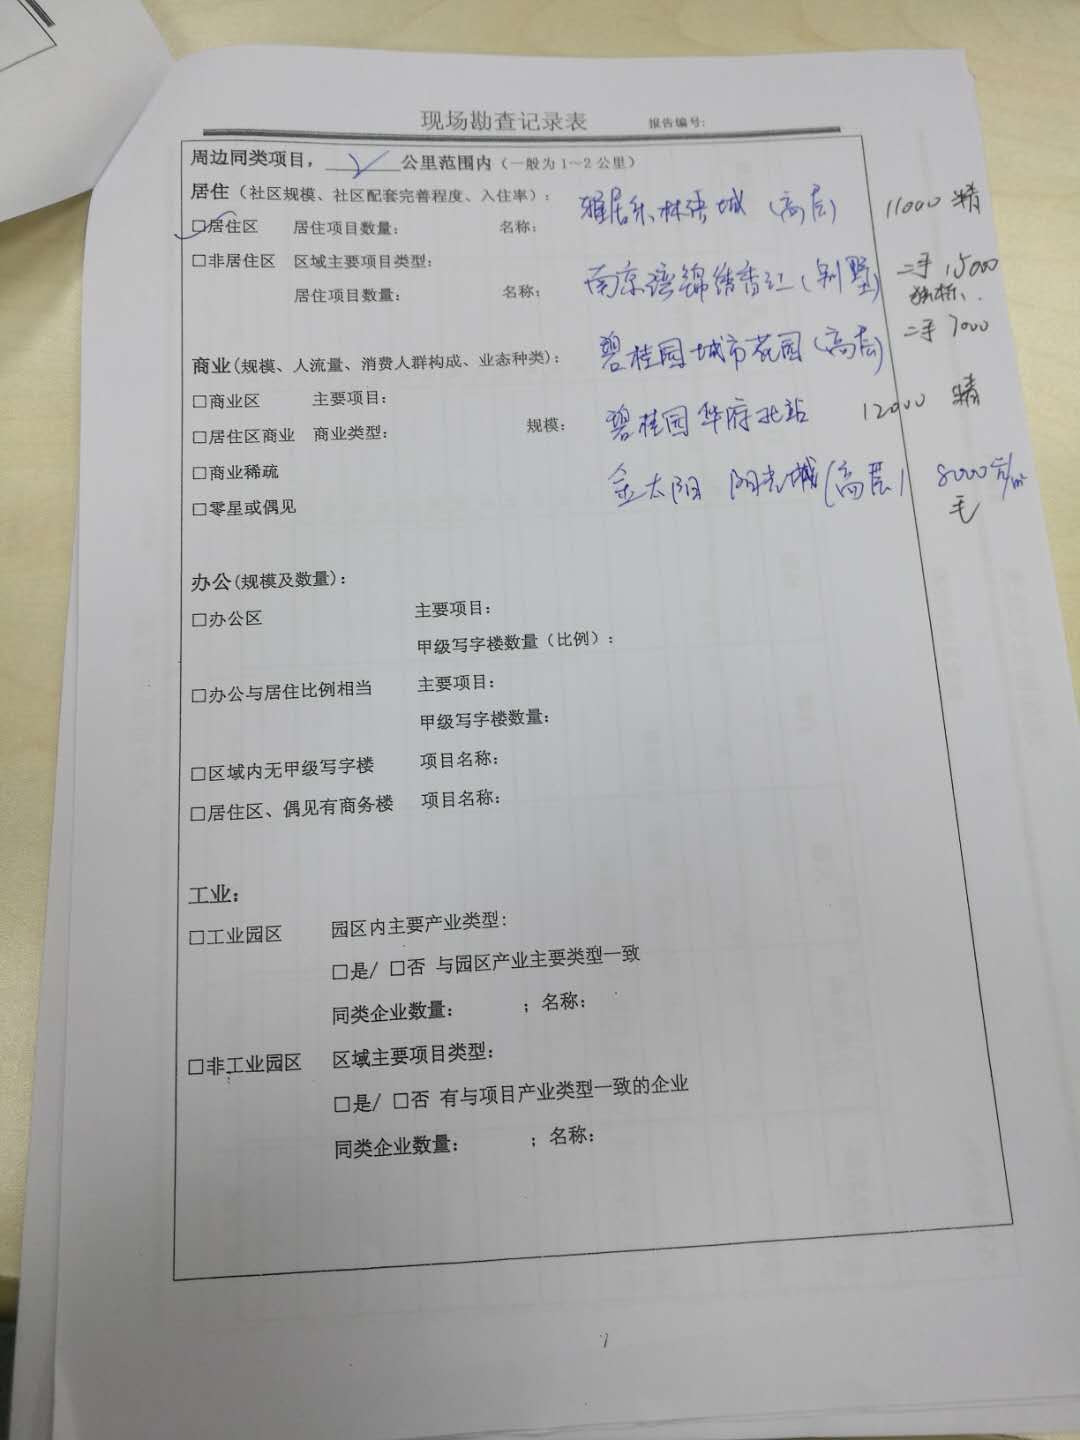 现场勘查记录表 报告编号:
周边同类项目，公里范围内（一般为1~2公里）
居住（社区规模、社区配套完善程度、入住率）：
雅居乐林语城（高层） 11000 精
□居住区 居住项目数量： 名称：
□非居住区 区域主要项目类型：
南京湾锦绣香江（别墅） 二手 15000
居住项目数量： 名称：
碧桂园城市花园（高层） 二手 7000
商业(规模、人流量、消费人群构成、业态种类)：
□商业区 主要项目：
碧桂园华府北站 12000 精
□居住区商业 商业类型： 规模：
□商业稀疏
金太阳 阳光城(高层) 8000元/m²
毛
□零星或偶见
办公(规模及数量)：
□办公区 主要项目：
甲级写字楼数量（比例）：
□办公与居住比例相当 主要项目：
甲级写字楼数量：
□区域内无甲级写字楼 项目名称：
□居住区、偶见有商务楼 项目名称：
工业：
□工业园区 园区内主要产业类型：
□是/ □否 与园区产业主要类型一致
同类企业数量： ；名称：
□非工业园区 区域主要项目类型：
□是/ □否 有与项目产业类型一致的企业
同类企业数量： ；名称：
1